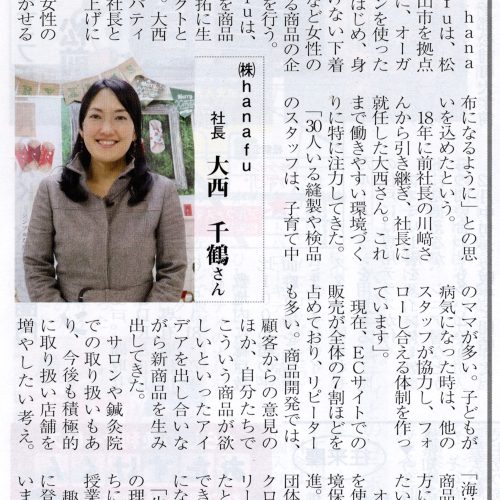 hana
fuは、松
山市を拠点
に、オーガ
ンを使った
はじめ、身
けない下着
など女性の
る商品の企
を行う。
fuは、
を商品
拓に生
クトと
。大西
バティ
社長と
上げに
女性の
かせる
㈱hanafu
社長 大西 千鶴さん
布になるように」との思
いを込めたという。
18年に前社長の川﨑さ
んから引き継ぎ、社長に
就任した大西さん。これ
まで働きやすい環境づく
りに特に注力してきた。
「30人いる縫製や検品
のスタッフは、子育て中
のママが多い。子どもが
病気になった時は、他の
スタッフが協力し、フォ
ローし合える体制を作っ
ています」。
現在、ECサイトでの
販売が全体の7割ほどを
占めており、リピーター
も多い。商品開発では、
顧客からの意見の
ほか、自分たちで
こういう商品が欲
しいといったアイ
デアを出し合いな
がら新商品を生み
出してきた。
サロンや鍼灸院
での取り扱いもあ
り、今後も積極的
に取り扱い店舗を
増やしたい考え。
商品
方に
たい
オ
を使
境保
進
団体
クロ
リー
たと
でき
にな
の理
ちに
授業
趣
に登
いま